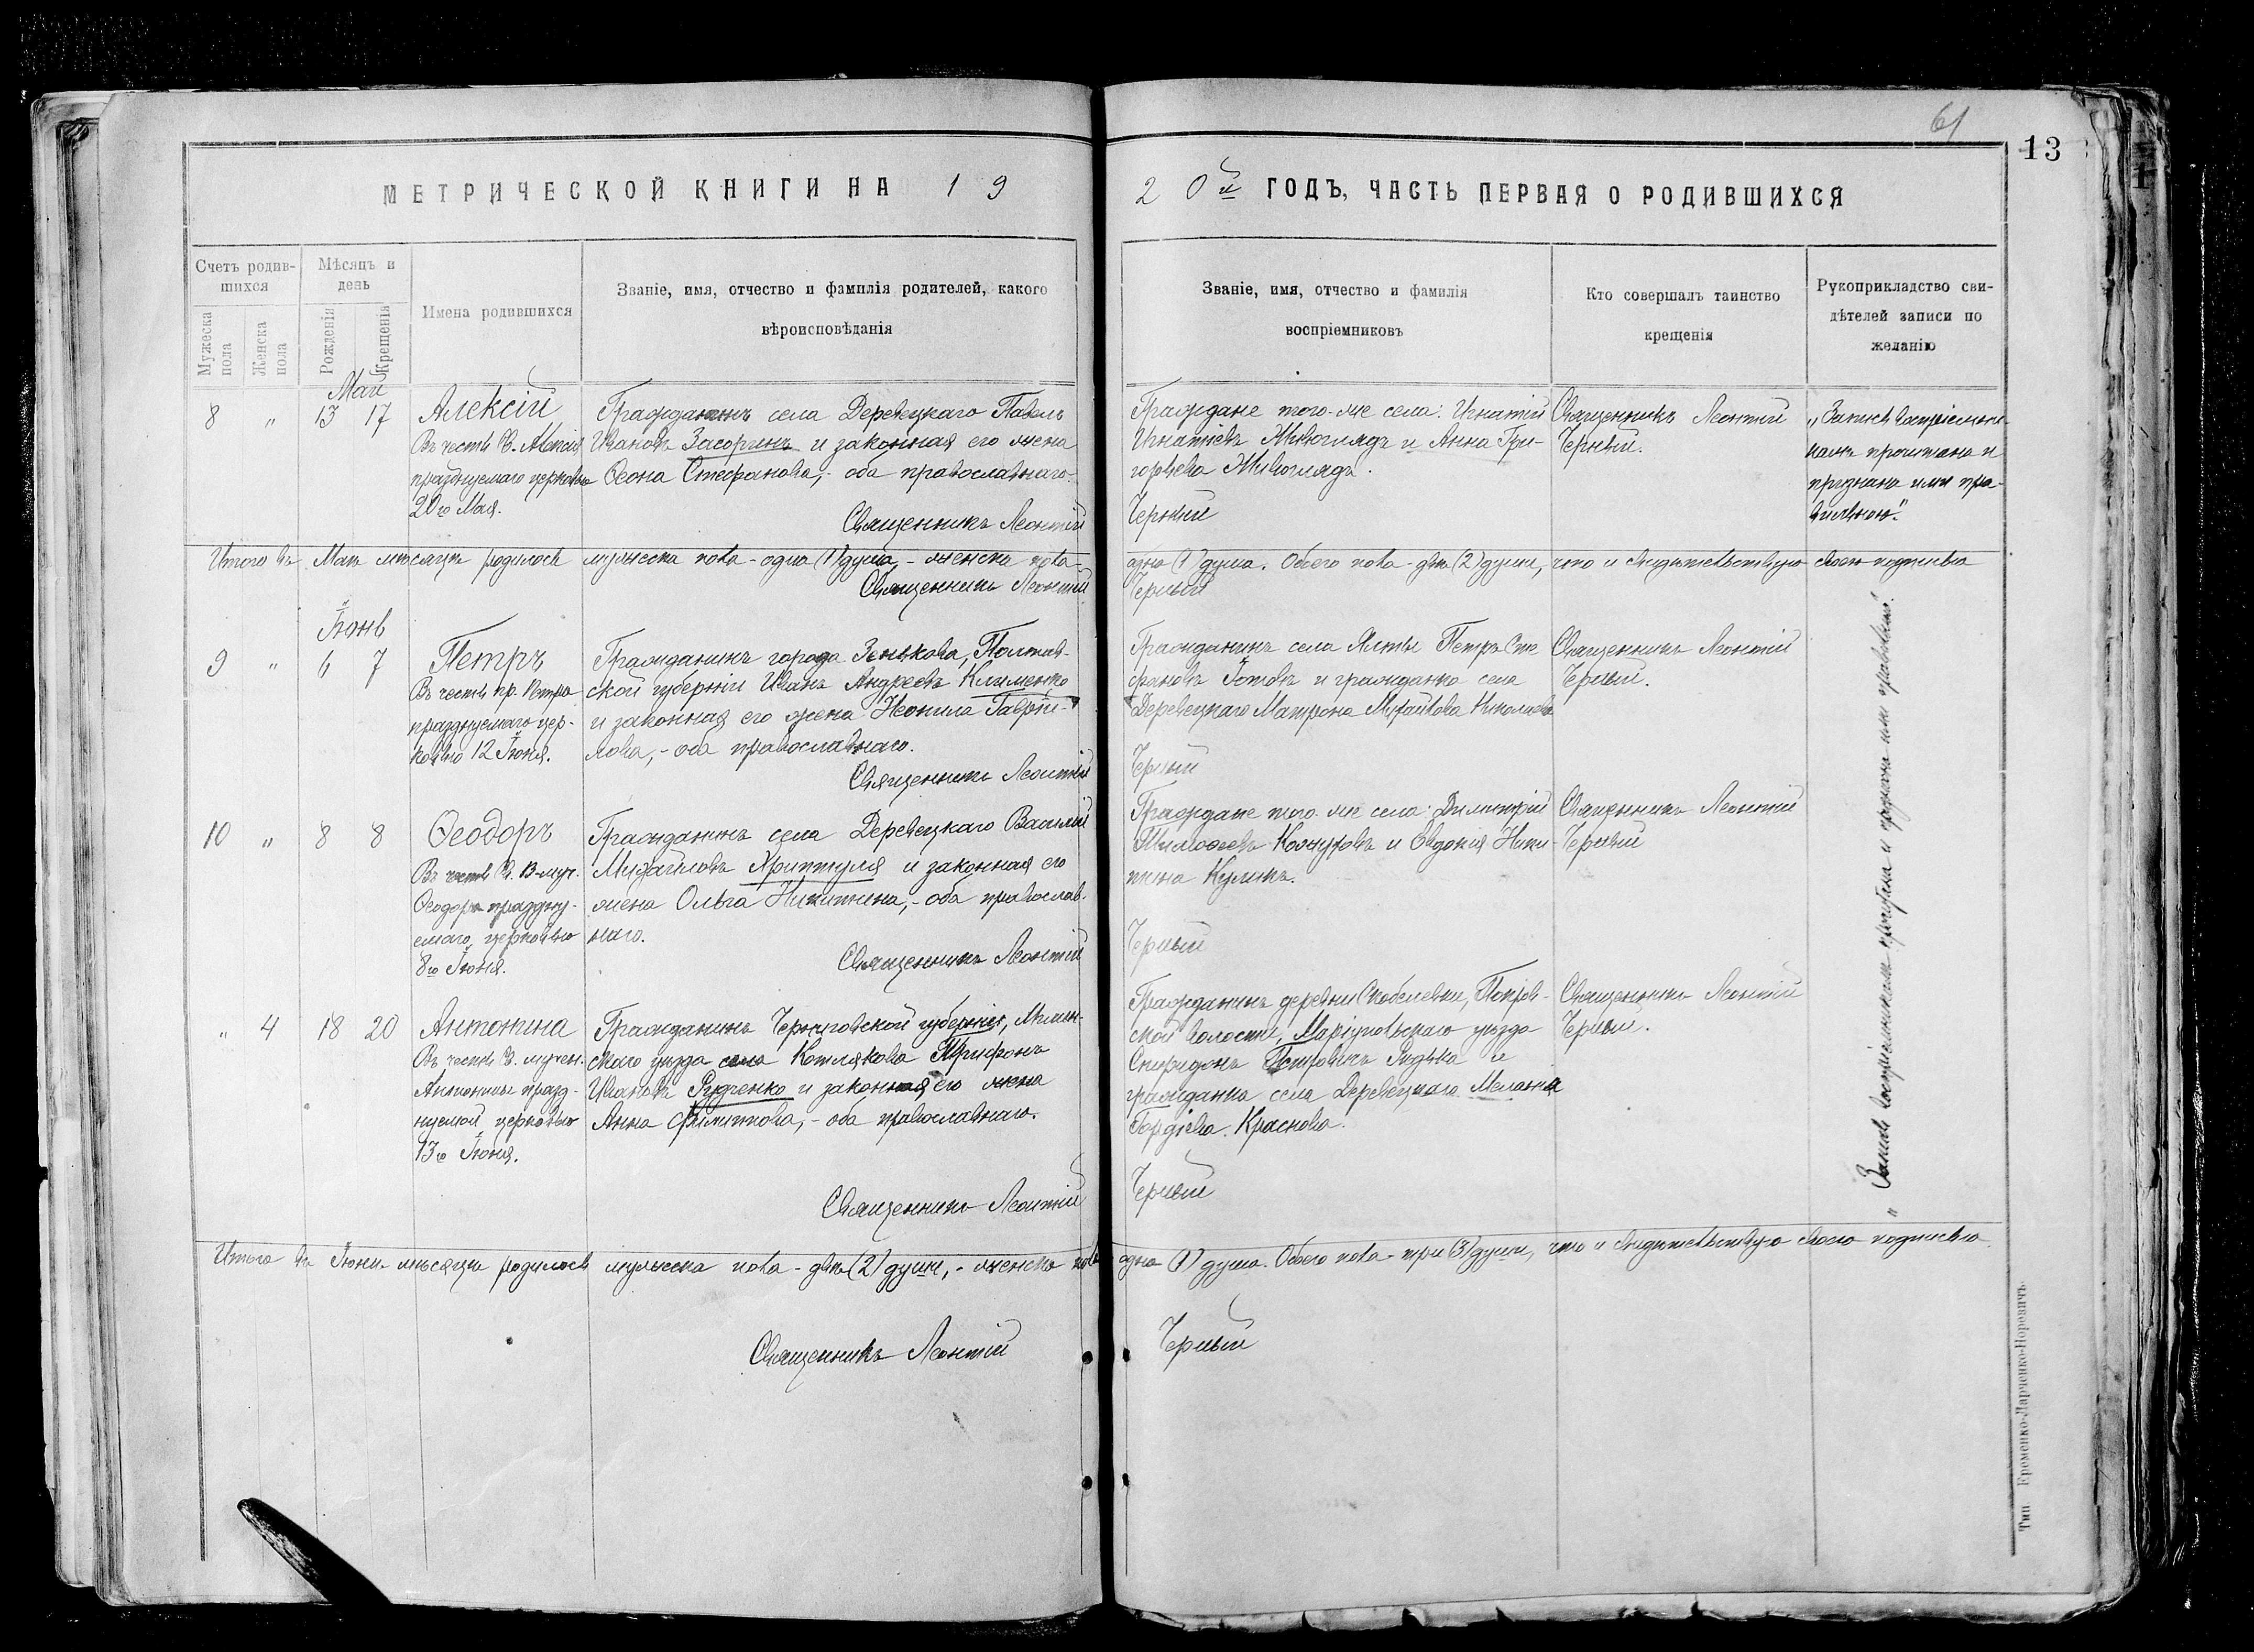 61
13
МЕТРИЧЕСКОЙ КНИГИ НА 19
20й ГОДЪ, ЧАСТЬ ПЕРВАЯ О РОДИВШИХСЯ
Счетъ родив-
шихся
Мужеска
пола
Женска
пола
Мѣсяцъ и
день
Рожденія
Крещенія
Имена родившихся
Званіе, имя, отчество и фамилія родителей, какого
вѣроисповѣданія
Званіе, имя, отчество и фамилія
воспріемниковъ
Кто совершалъ таинство
крещенія
Рукоприкладство сви-
дѣтелей записи по
желанію
Май
8 " 13 17
Алексій
Въ честь Св. Алексія
празднуемаго церковью
20го Мая.
Гражданинъ села Деревецкаго Павелъ
Ивановъ Засоринъ и законная его жена
Ѳеона Стефанова, - оба православнаго.
Священникъ Леонтій
Граждане того-же села: Игнатій
Игнатіевъ Живоглядъ и Анна Гри-
горьева Живоглядъ.
Черный
Священникъ Леонтій
Черный.
"Запись воспріемни-
камъ прочитана и
признана ими пра-
вильною".
Итого въ Маѣ мѣсяцѣ родилось мужеска пола - одна (1) душа, - женска пола -
одна (1) душа. Обоего пола - двѣ (2) души, что и свидѣтельствую своею подписью
Священникъ Леонтій
Черный
Іюнь
9 " 6 7
Петръ
Въ честь пр. Петра
празднуемаго цер-
ковью 12 Іюня.
Гражданинъ города Зенькова, Полтав-
ской губерніи Иванъ Андреевъ Клименко
и законная его жена Неонила Гаврі-
лова, - оба православнаго.
Священникъ Леонтій
Гражданинъ села Ялты Петръ Сте
фановъ Готовъ и гражданка села
Деревецкаго Матрона Михайлова Николаева
Черный
Священникъ Леонтій
Черный.
10 " 8 8
Ѳеодоръ
Въ честь Св. В-муч.
Ѳеодора праздну-
емаго церковью
8го Іюня.
Гражданинъ села Деревецкаго Василій
Михайловъ Хриптуля и законная его
жена Ольга Никитина, - оба православ-
наго.
Священникъ Леонтій
Граждане того же села: Димитрій
Тимоѳеевъ и Евдокія Ники-
тина Куликъ.
Черный
Священникъ Леонтій
Черный
" 4 18 20
Антонина
Въ честь Св. мучен.
Антонины празд-
нуемой церковью
13го Іюня.
Гражданинъ Черниговской губерніи, Мглин-
скаго уѣзда села Котлякова Трифонъ
Ивановъ Рудченко и законная его жена
Анна Филиппова, - оба православнаго.
Священникъ Леонтій
Гражданинъ деревни Скобелевки, Покров-
ской волости, Маріупольскаго уѣзда
Спиридонъ Петровичъ Рудька и
гражданка села Деревецкаго Меланія
Гордіева Краснова.
Черный
Священникъ Леонтій
Черный.
"Запись воспріемникамъ прочитана и признана ими правильной.
Итого въ Іюнѣ мѣсяцѣ родилось мужеска пола - двѣ (2) души, - женска пола
одна (1) душа. Обоего пола - три (3) души, что и свидѣтельствую своею подписью
Священникъ Леонтій
Черный
Тип Еременко-Ларченко-Норевичъ